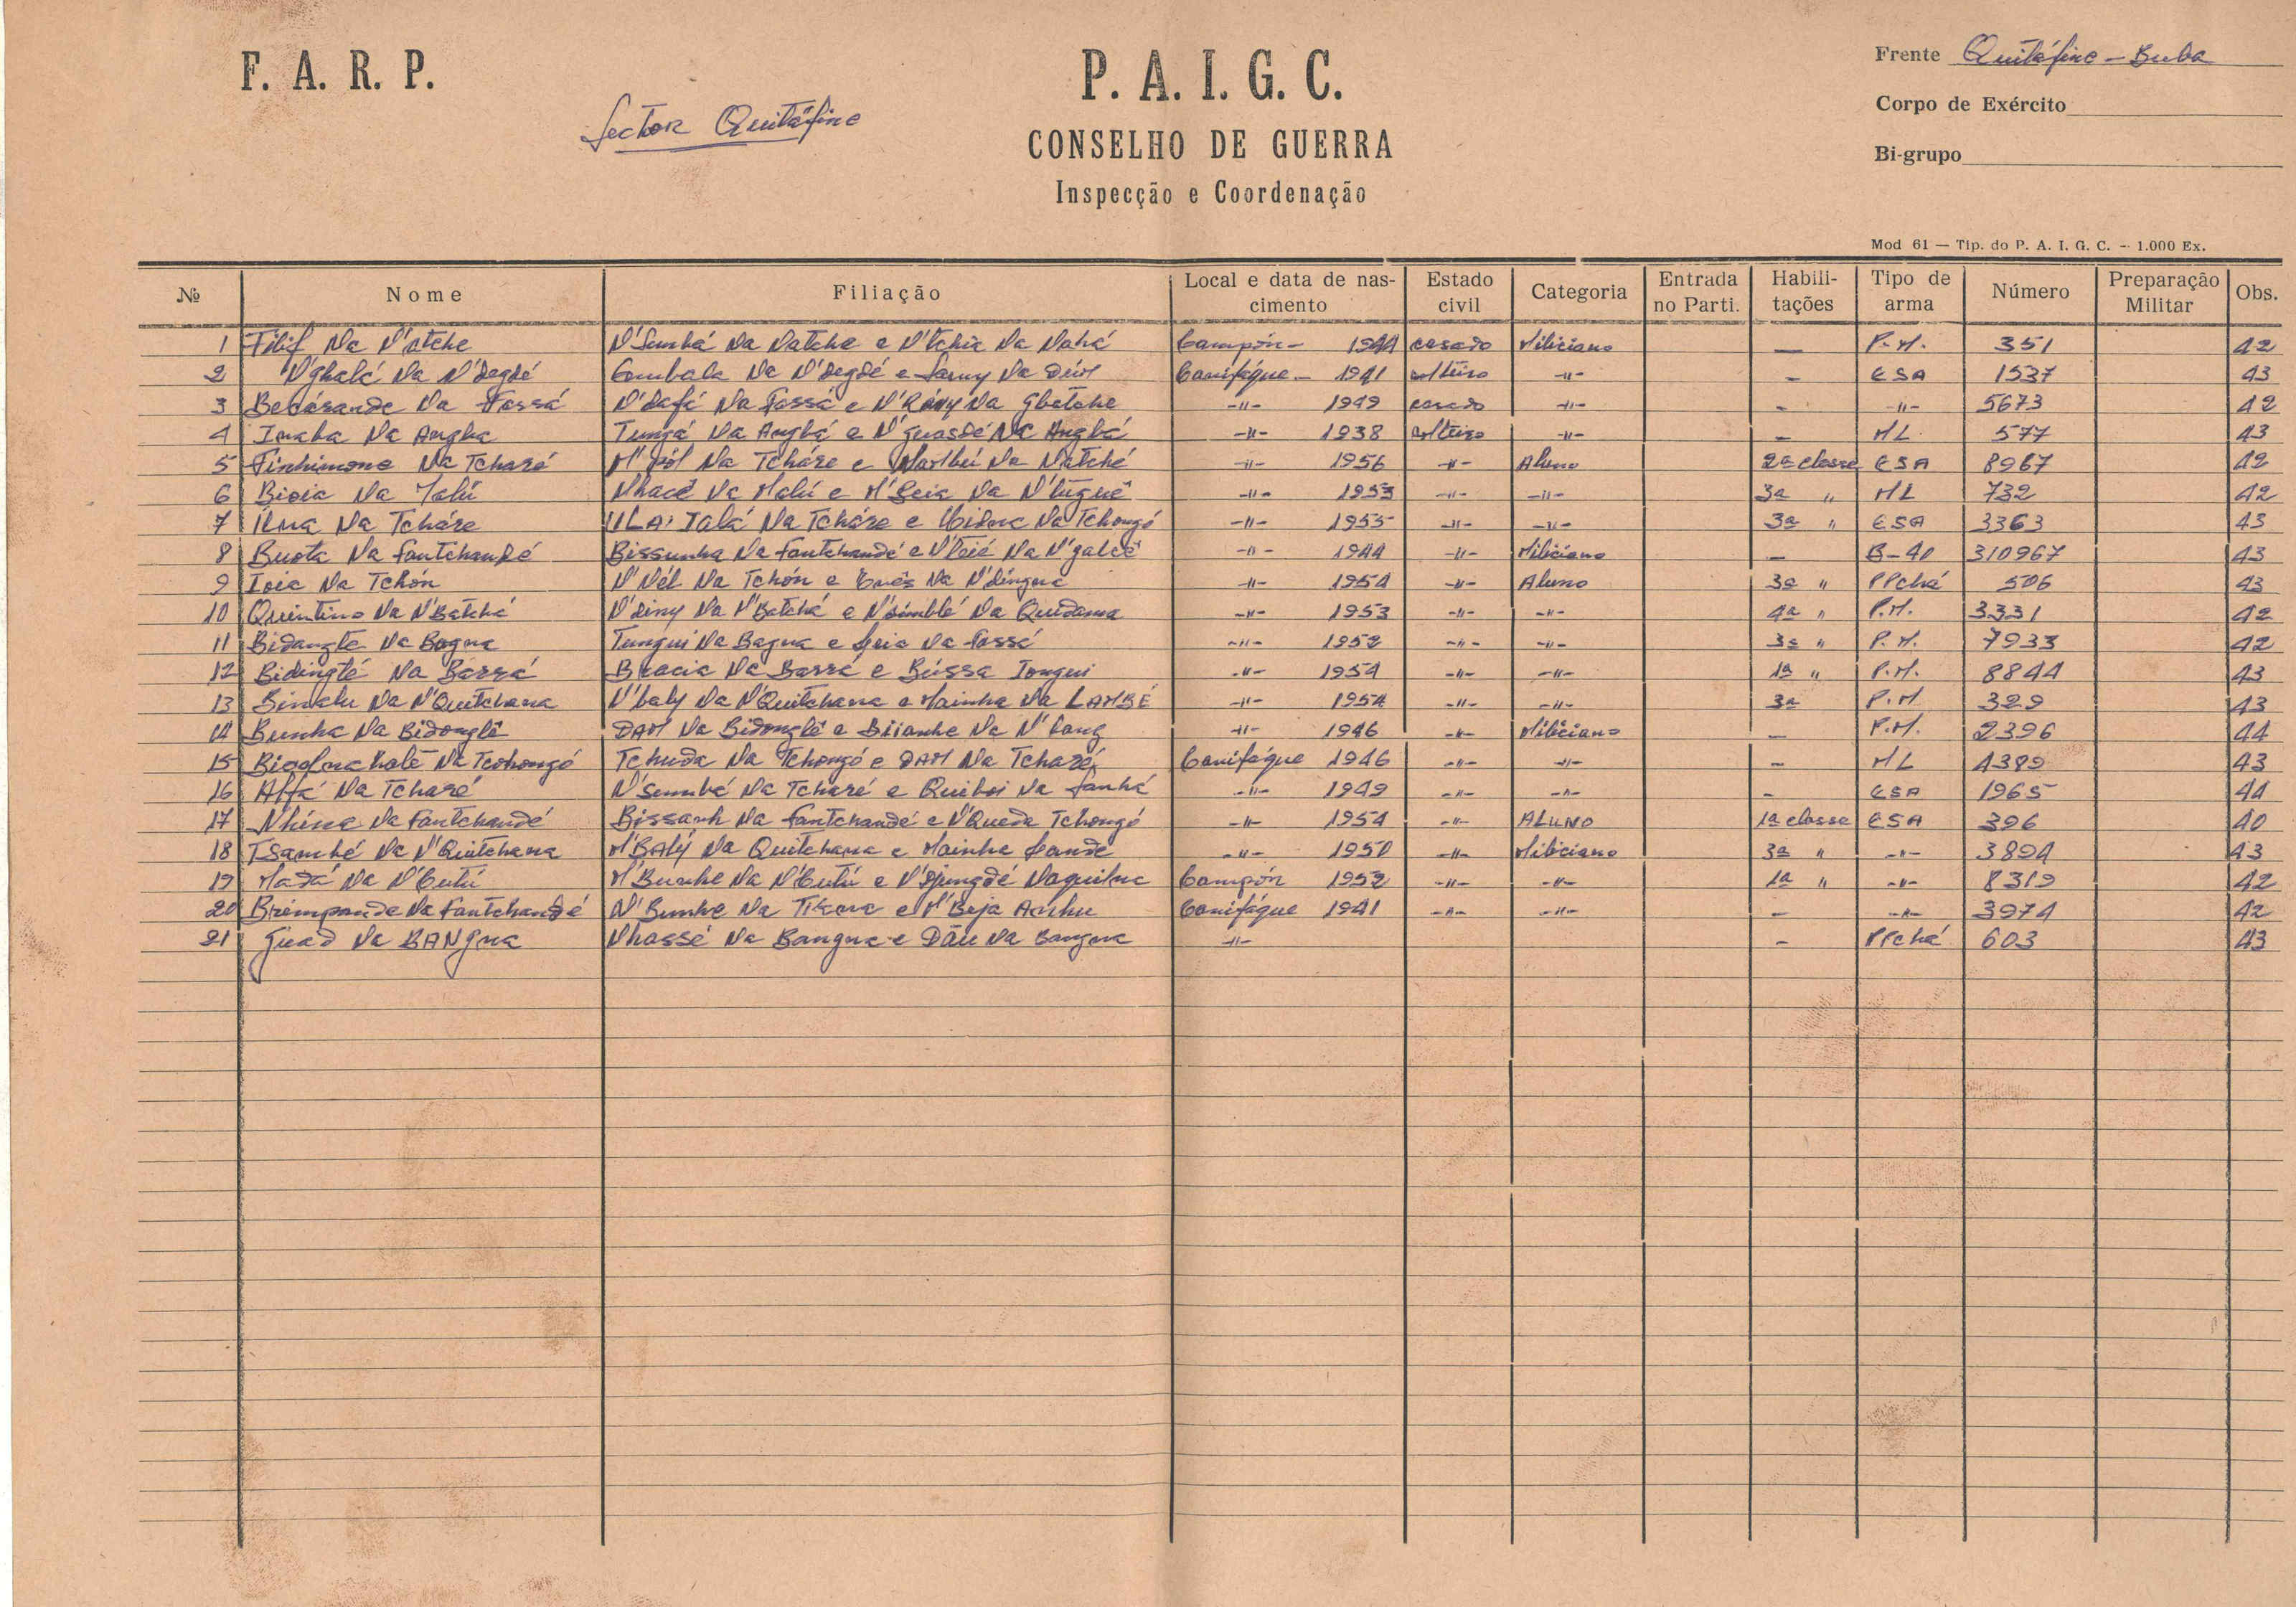 F. A. R. P.
Sector Quitáfine
P. A. I. G. C.
CONSELHO DE GUERRA
Inspecção e Coordenação
Frente Quitáfine – Buba
Corpo de Exército
Bi-grupo
Mod 61 — Tip. do P. A. I. G. C. – 1.000 Ex.
№ Nome Filiação Local e data de nascimento Estado civil Categoria Entrada no Parti. Habilitações Tipo de arma Número Preparação Militar Obs.
1 Filif Na N'atche N'Sumbá Na Natche e N'tchia Na Nahá Campón – 1944 casado Miliciano — P.M. 351 42
2 N'ghalá Na N'degdé Gombala Na N'degdé e Na Canifáque – 1941 solteiro –"– – ESA 1537 43
3 Na Fassá N'dafá Na Fassá e Na –"– 1949 casado –"– – –"– 5673 42
4 Inaba Na Angba Tungá Na Angbá e Na Angbá –"– 1938 solteiro –"– – ML 577 43
5 Finhimone Na Tcharé Na Tcháre e Na Natché –"– 1956 –"– Aluno 2ª classe ESA 8967 42
6 Bioia Na Malú Nhacé Na Malú e Na –"– 1953 –"– –"– 3ª " ML 732 42
7 Na Tcháre Ialá Na Tcháre e Na Tchongó –"– 1955 –"– –"– 3ª " ESA 3363 43
8 Buota Na Fantchandé Bissunha Na Fantchandé e Na N'galcê –"– 1944 –"– Miliciano – B-40 310967 43
9 Ioia Na Tchón N'Nél Na Tchón e Na N'dingna –"– 1954 –"– Aluno 3ª " PPchá 506 43
10 Quintino Na N'Batchá N'diny Na N'Batchá e N'dimblé Na Quidama –"– 1953 –"– –"– 4ª " P.M. 3331 42
11 Bidangte Na Bagna Tungui Na Bagna e Na Fassé –"– 1952 –"– –"– 3ª " P.M. 7933 42
12 Bidingté Na Barrá Bracia Na Barré e Bússa Iongui –"– 1954 –"– –"– 1ª " P.M. 8844 43
13 Binalu Na N'Quitchana N'baly Na N'Quitchana e Mainha Na LAMBÉ –"– 1954 –"– –"– 3ª P.M 329 43
14 Bunha Na Bidonglê DAM Na Bidonglê e Na –"– 1946 –"– Miliciano – P.M. 2396 44
15 Na Tcohongó Tchuda Na Tchongó e DAM Na Tcharé Canifáque 1946 –"– –"– – ML 4389 43
16 Alfá Na Tcharé N'Sumbé Na Tcharé e Na Sanhá –"– 1949 –"– –"– – ESA 1965 44
17 Na Fantchandé Bissanh Na Fantchandé e N'Queda Tchongó –"– 1954 –"– ALUNO 1ª classe ESA 396 40
18 Isambé Na N'Quitchana M'BAlý Na Quitchana e Mainha –"– 1950 –"– Miliciano 3ª " –"– 3894 43
19 Madá Na N'Cutú M'Bunhe Na N'Cutú e Campón 1952 –"– –"– 1ª " –"– 8319 42
20 Brémpande Na Fantchandé N'Bunhe Na e M'Beja Canifáque 1941 –"– –"– – –"– 3974 42
21 Na BANgna Nhassé Na Bangna e Dãu Na Bangna –"– – PPchá 603 43